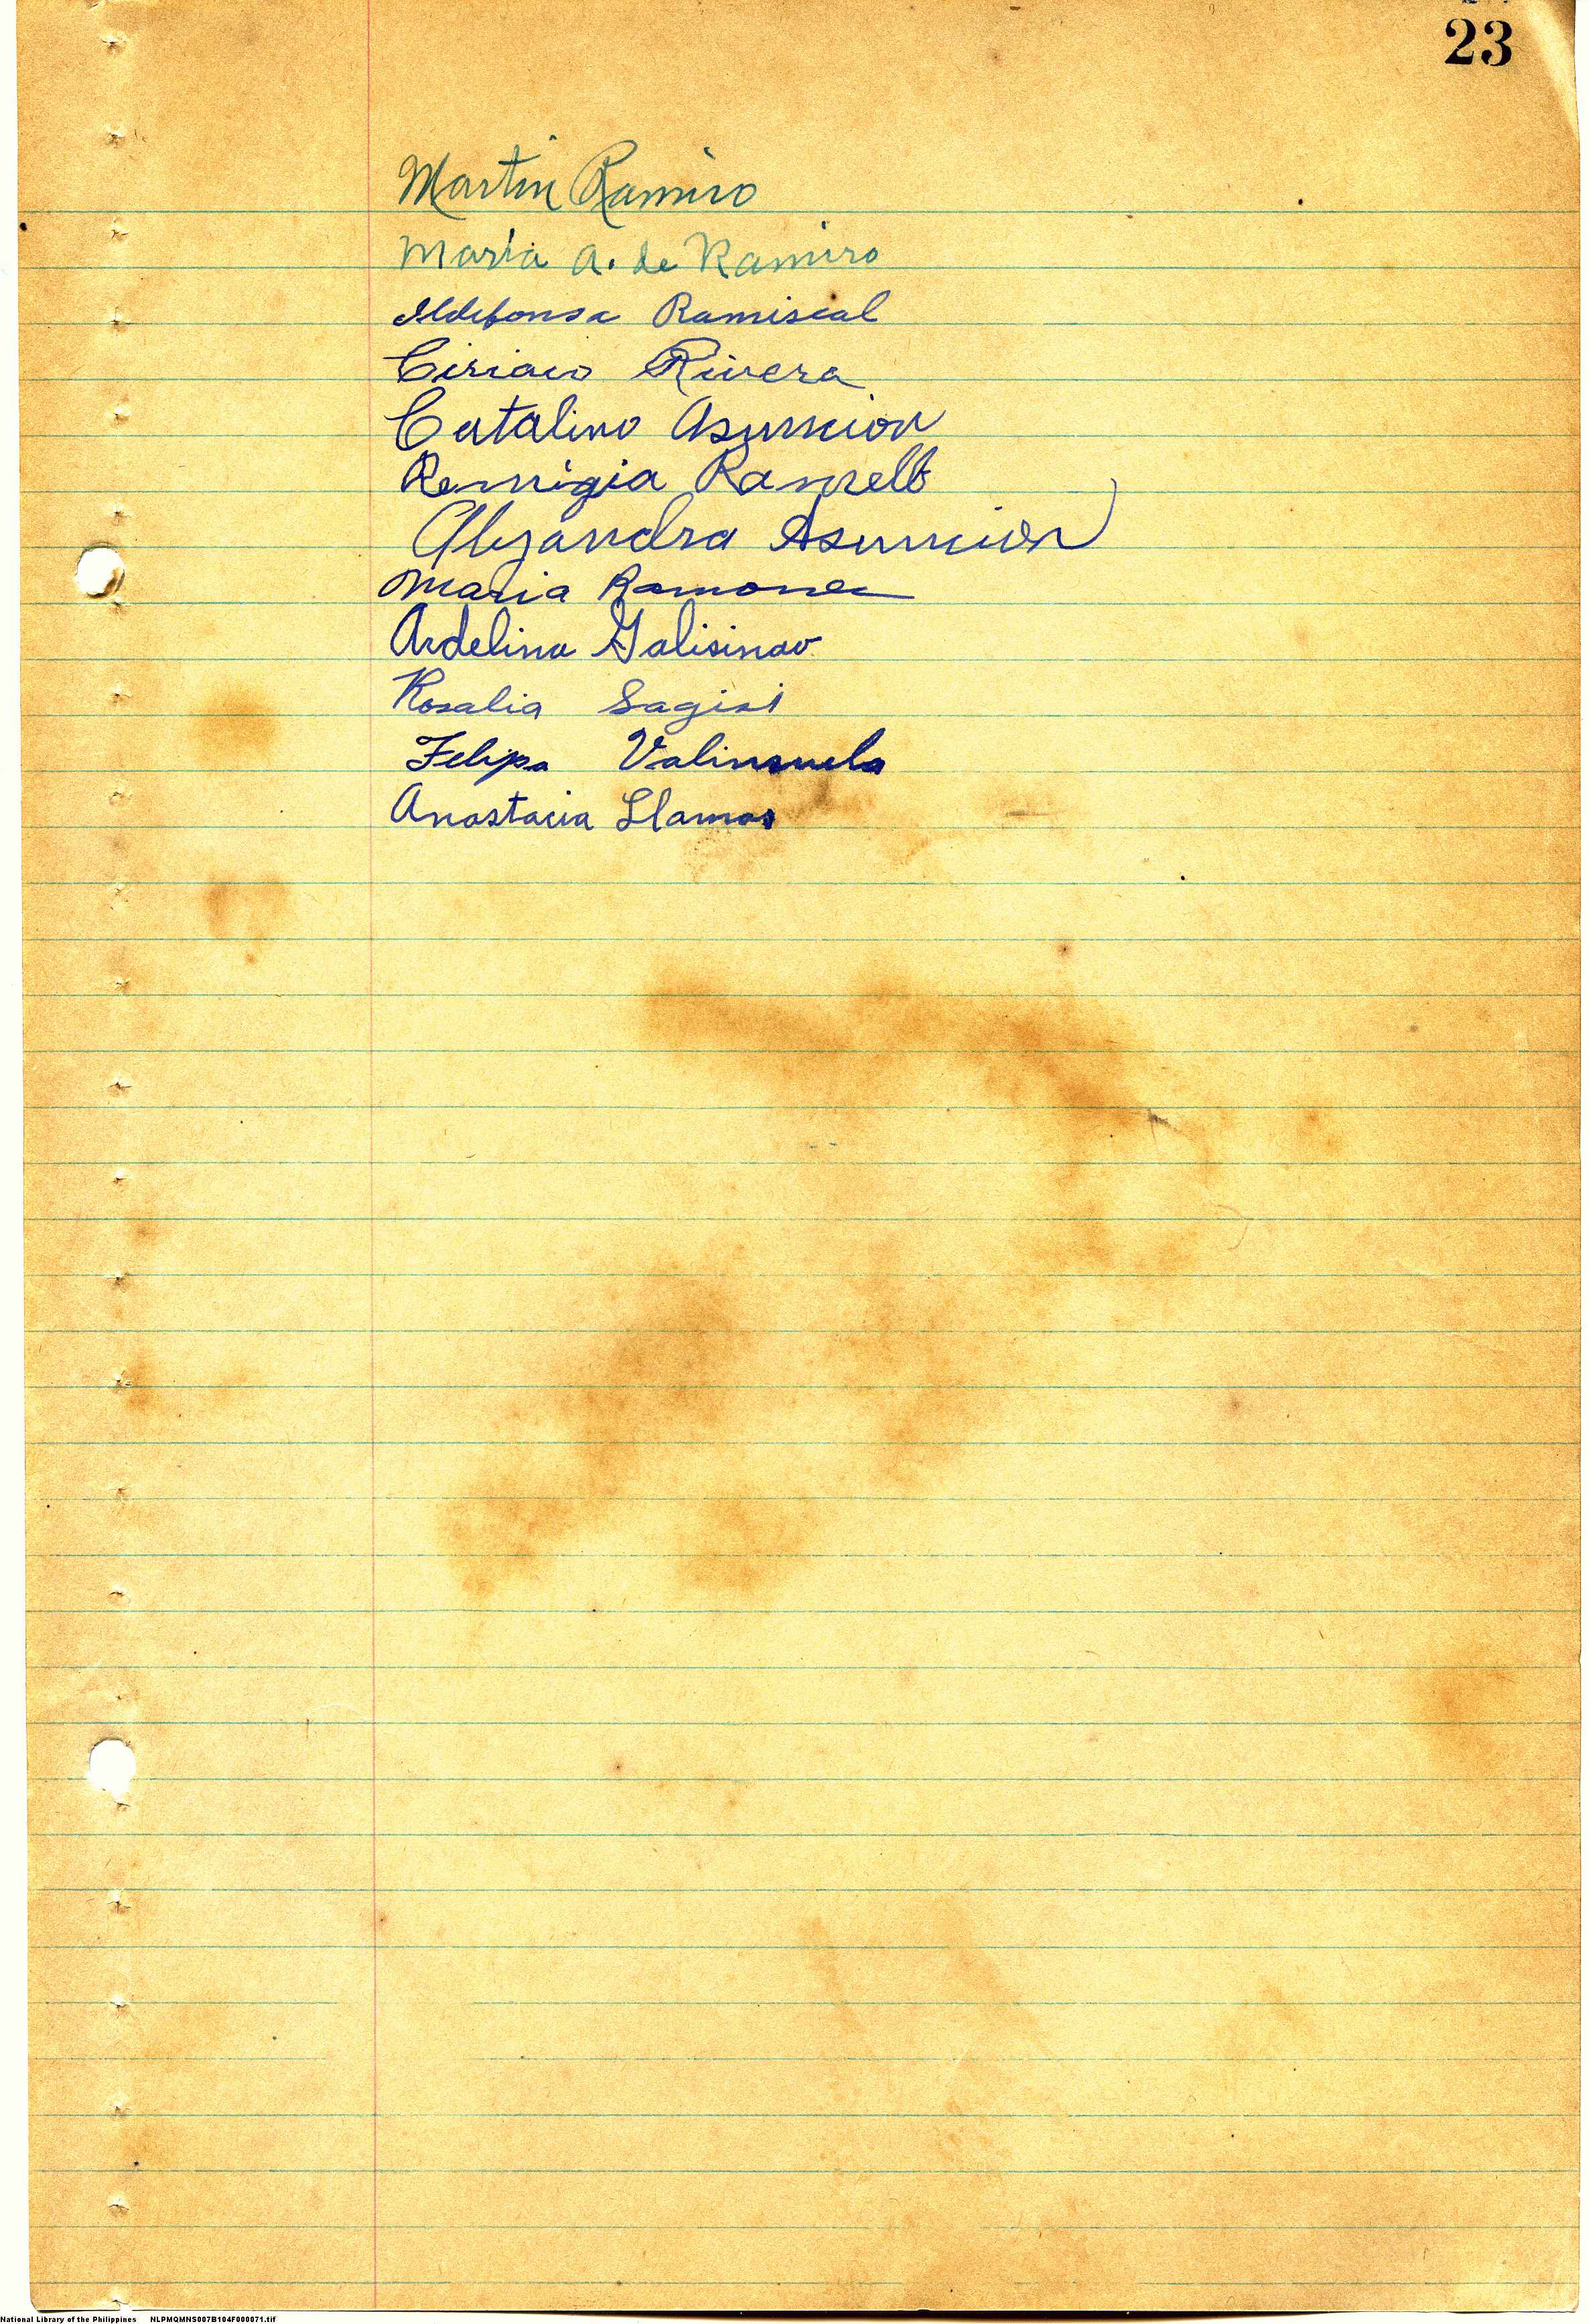 23
Martin Ramiro
Maria A. de Ramiro
Ildefonsa Ramiscal
Ciriaco Rivera
Catalino Asuncion
Remigia
Alejandra Asuncion
Maria Ramones
Ardelina Galisinao
Rosalia Sagisi
Felipa Valinsuela
Anastacia Llamas
National Library of the Philippines NLPMQMNS007B104F000071.tif